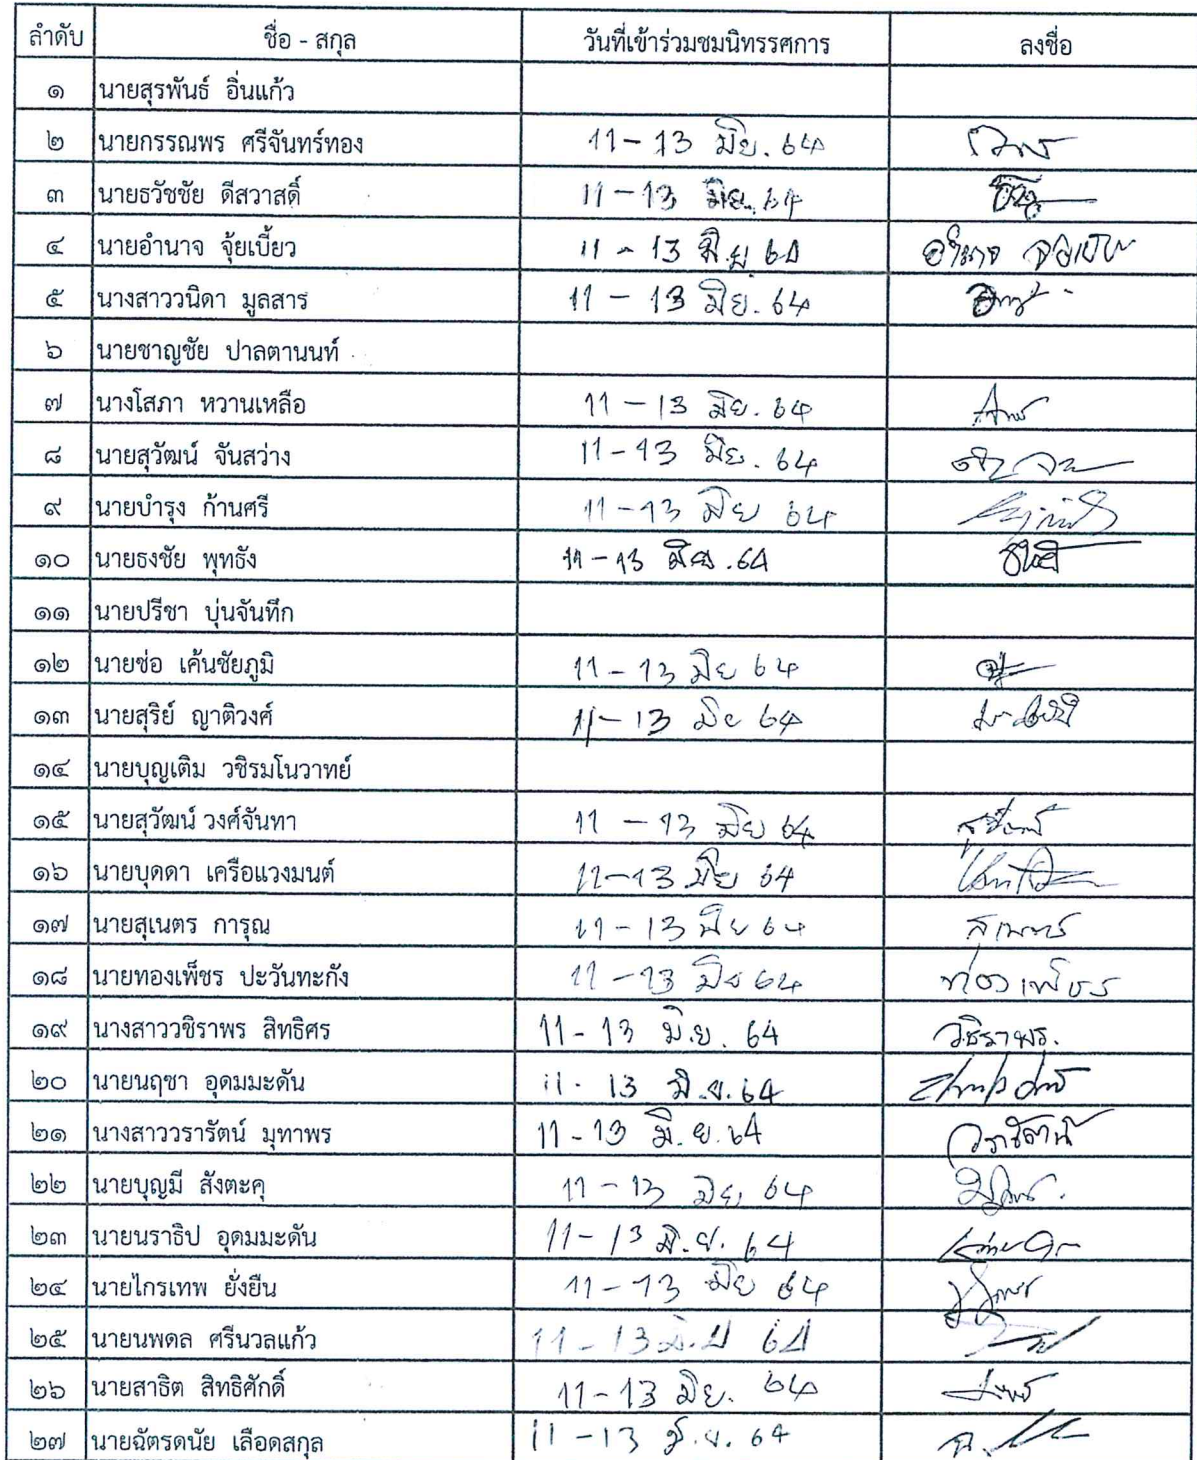 ลำดับ ชื่อ - สกุล วันที่เข้าร่วมชมนิทรรศการ ลงชื่อ
๑ นายสุรพันธ์ อิ่นแก้ว
๒ นายกรรณพร ศรีจันทร์ทอง 11-13 มิย. 64
๓ นายธวัชชัย ดีสวาสดิ์ 11-13 มิย. 64
๔ นายอำนาจ จุ้ยเบี้ยว 11-13 มิ.ย 64 อำนาจ
๕ นางสาววนิดา มูลสาร 11-13 มิย. 64
๖ นายชาญชัย ปาลตานนท์
๗ นางโสภา หวานเหลือ 11-13 มิย. 64
๘ นายสุวัฒน์ จันสว่าง 11-13 มิย. 64
๙ นายบำรุง ก้านศรี 11-13 มิย 64
๑๐ นายธงชัย พุทธัง 11-13 มิย .64
๑๑ นายปรีชา บุ่นจันทึก
๑๒ นายช่อ เค้นชัยภูมิ 11-13 มิย 64
๑๓ นายสุริย์ ญาติวงศ์ 11-13 มิย 64
๑๔ นายบุญเติม วชิรมโนวาทย์
๑๕ นายสุวัฒน์ วงศ์จันทา 11-13 มิย 64
๑๖ นายบุดดา เครือแวงมนต์ 11-13 มิย 64
๑๗ นายสุเนตร การุณ 11-13 มิย 64 สุเนตร
๑๘ นายทองเพ็ชร ปะวันทะกัง 11-13 มิย 64 ทองเพ็ชร
๑๙ นางสาววชิราพร สิทธิศร 11-13 มิ.ย. 64 วชิราพร.
๒๐ นายนฤชา อุดมมะดัน 11-13 มิ.ย. 64
๒๑ นางสาววรารัตน์ มุทาพร 11-13 มิ.ย. 64 วรารัตน์
๒๒ นายบุญมี สังตะคุ 11-13 มิย 64
๒๓ นายนราธิป อุดมมะดัน 11-13 มิ.ย. 64
๒๔ นายไกรเทพ ยั่งยืน 11-13 มิย 64
๒๕ นายนพดล ศรีนวลแก้ว 11-13 มิ.ย 64
๒๖ นายสาธิต สิทธิศักดิ์ 11-13 มิย. 64
๒๗ นายฉัตรดนัย เลือดสกุล 11-13 มิ.ย. 64